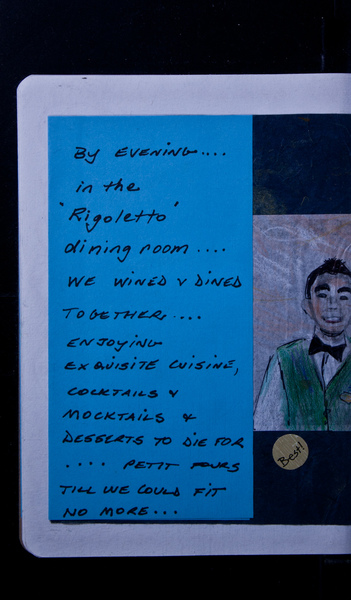 By EVENING....
in the
"Rigoletto"
dining room....
WE WINED & DINED
TOGETHER....
ENJOYING
EXQUISITE CUISINE,
COCKTAILS &
MOCKTAILS &
DESSERTS TO DIE FOR
.... PETIT FOURS
TILL WE COULD FIT
NO MORE...
Best!